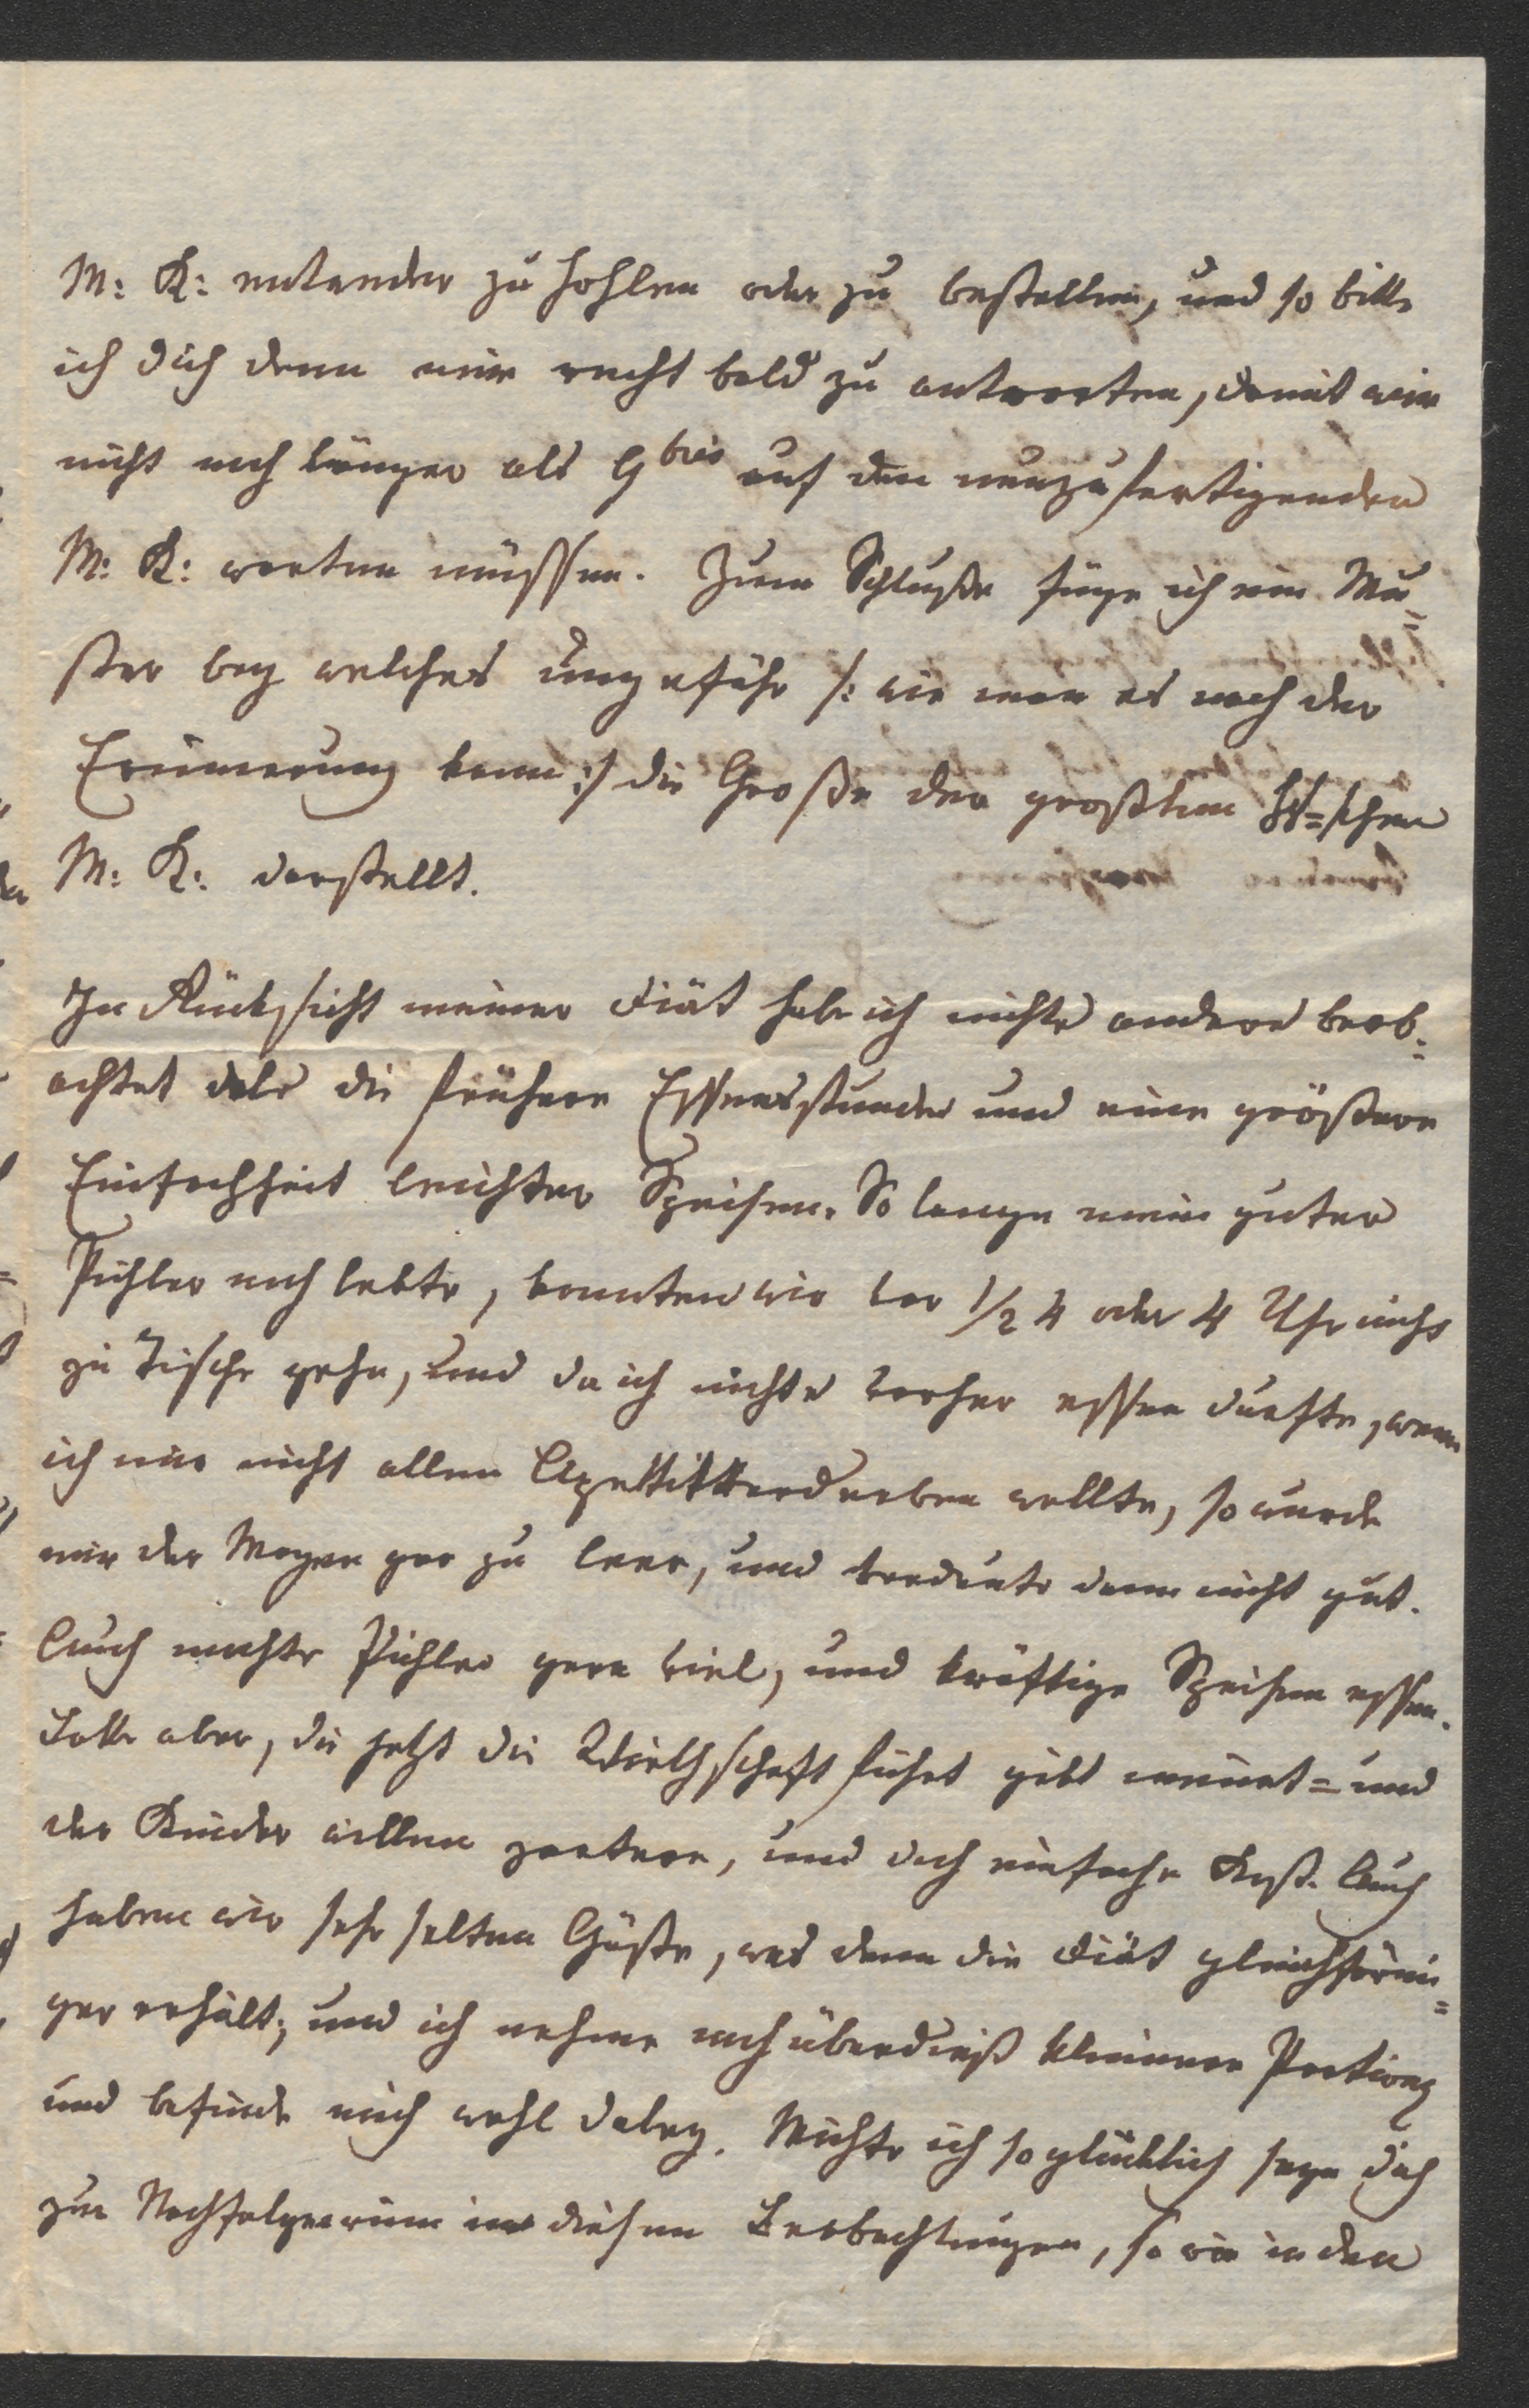 M: K: entweder zu hohlen oder zu bestellen, und so bitte
ich dich denn mir recht bald zu antworten, damit wir
nicht noch länger als 9bris auf den neuzufertigenden
M: K: warten müssen. Zum Schluße füge ich ein Mu=
ster bey welches ungefähr /: wie man es nach der
Erinnerung kann :/ die Große der großten schen
M: K: darstellt.
In Rücksicht meiner Diät habe ich nichts anders beob=
achtet als die frühere Essensstunde und eine größere
Einfachheit leichter Speisen. So lange mein guter
Pichler noch lebte, konnten wir vor 1/2 4 oder 4 Uhr nicht
zu Tische gehn, und da ich nichts vorher essen durfte, wenn
ich mir nicht allen Apettit verderben wollte, so wurde
mir der Magen gar zu leer, und verdaute dann nicht gut.
Auch mochte Pichler gern viel, und kräftige Speisen essen.
Lotte aber, die jetzt die Wirthschaft führt gibt meinet= und
der Kinder willen zartere, und doch einfache Kost. Auch
haben wir sehr selten Gäste, was denn die Diät gleichförmi=
ger erhält; und ich nehme noch überdieß kleinere Portionen
und befinde mich wohl dabey. Möchte ich so glücklich seyn dich
zur Nachfolgerinn in diesen Beobachtungen, so wie in den